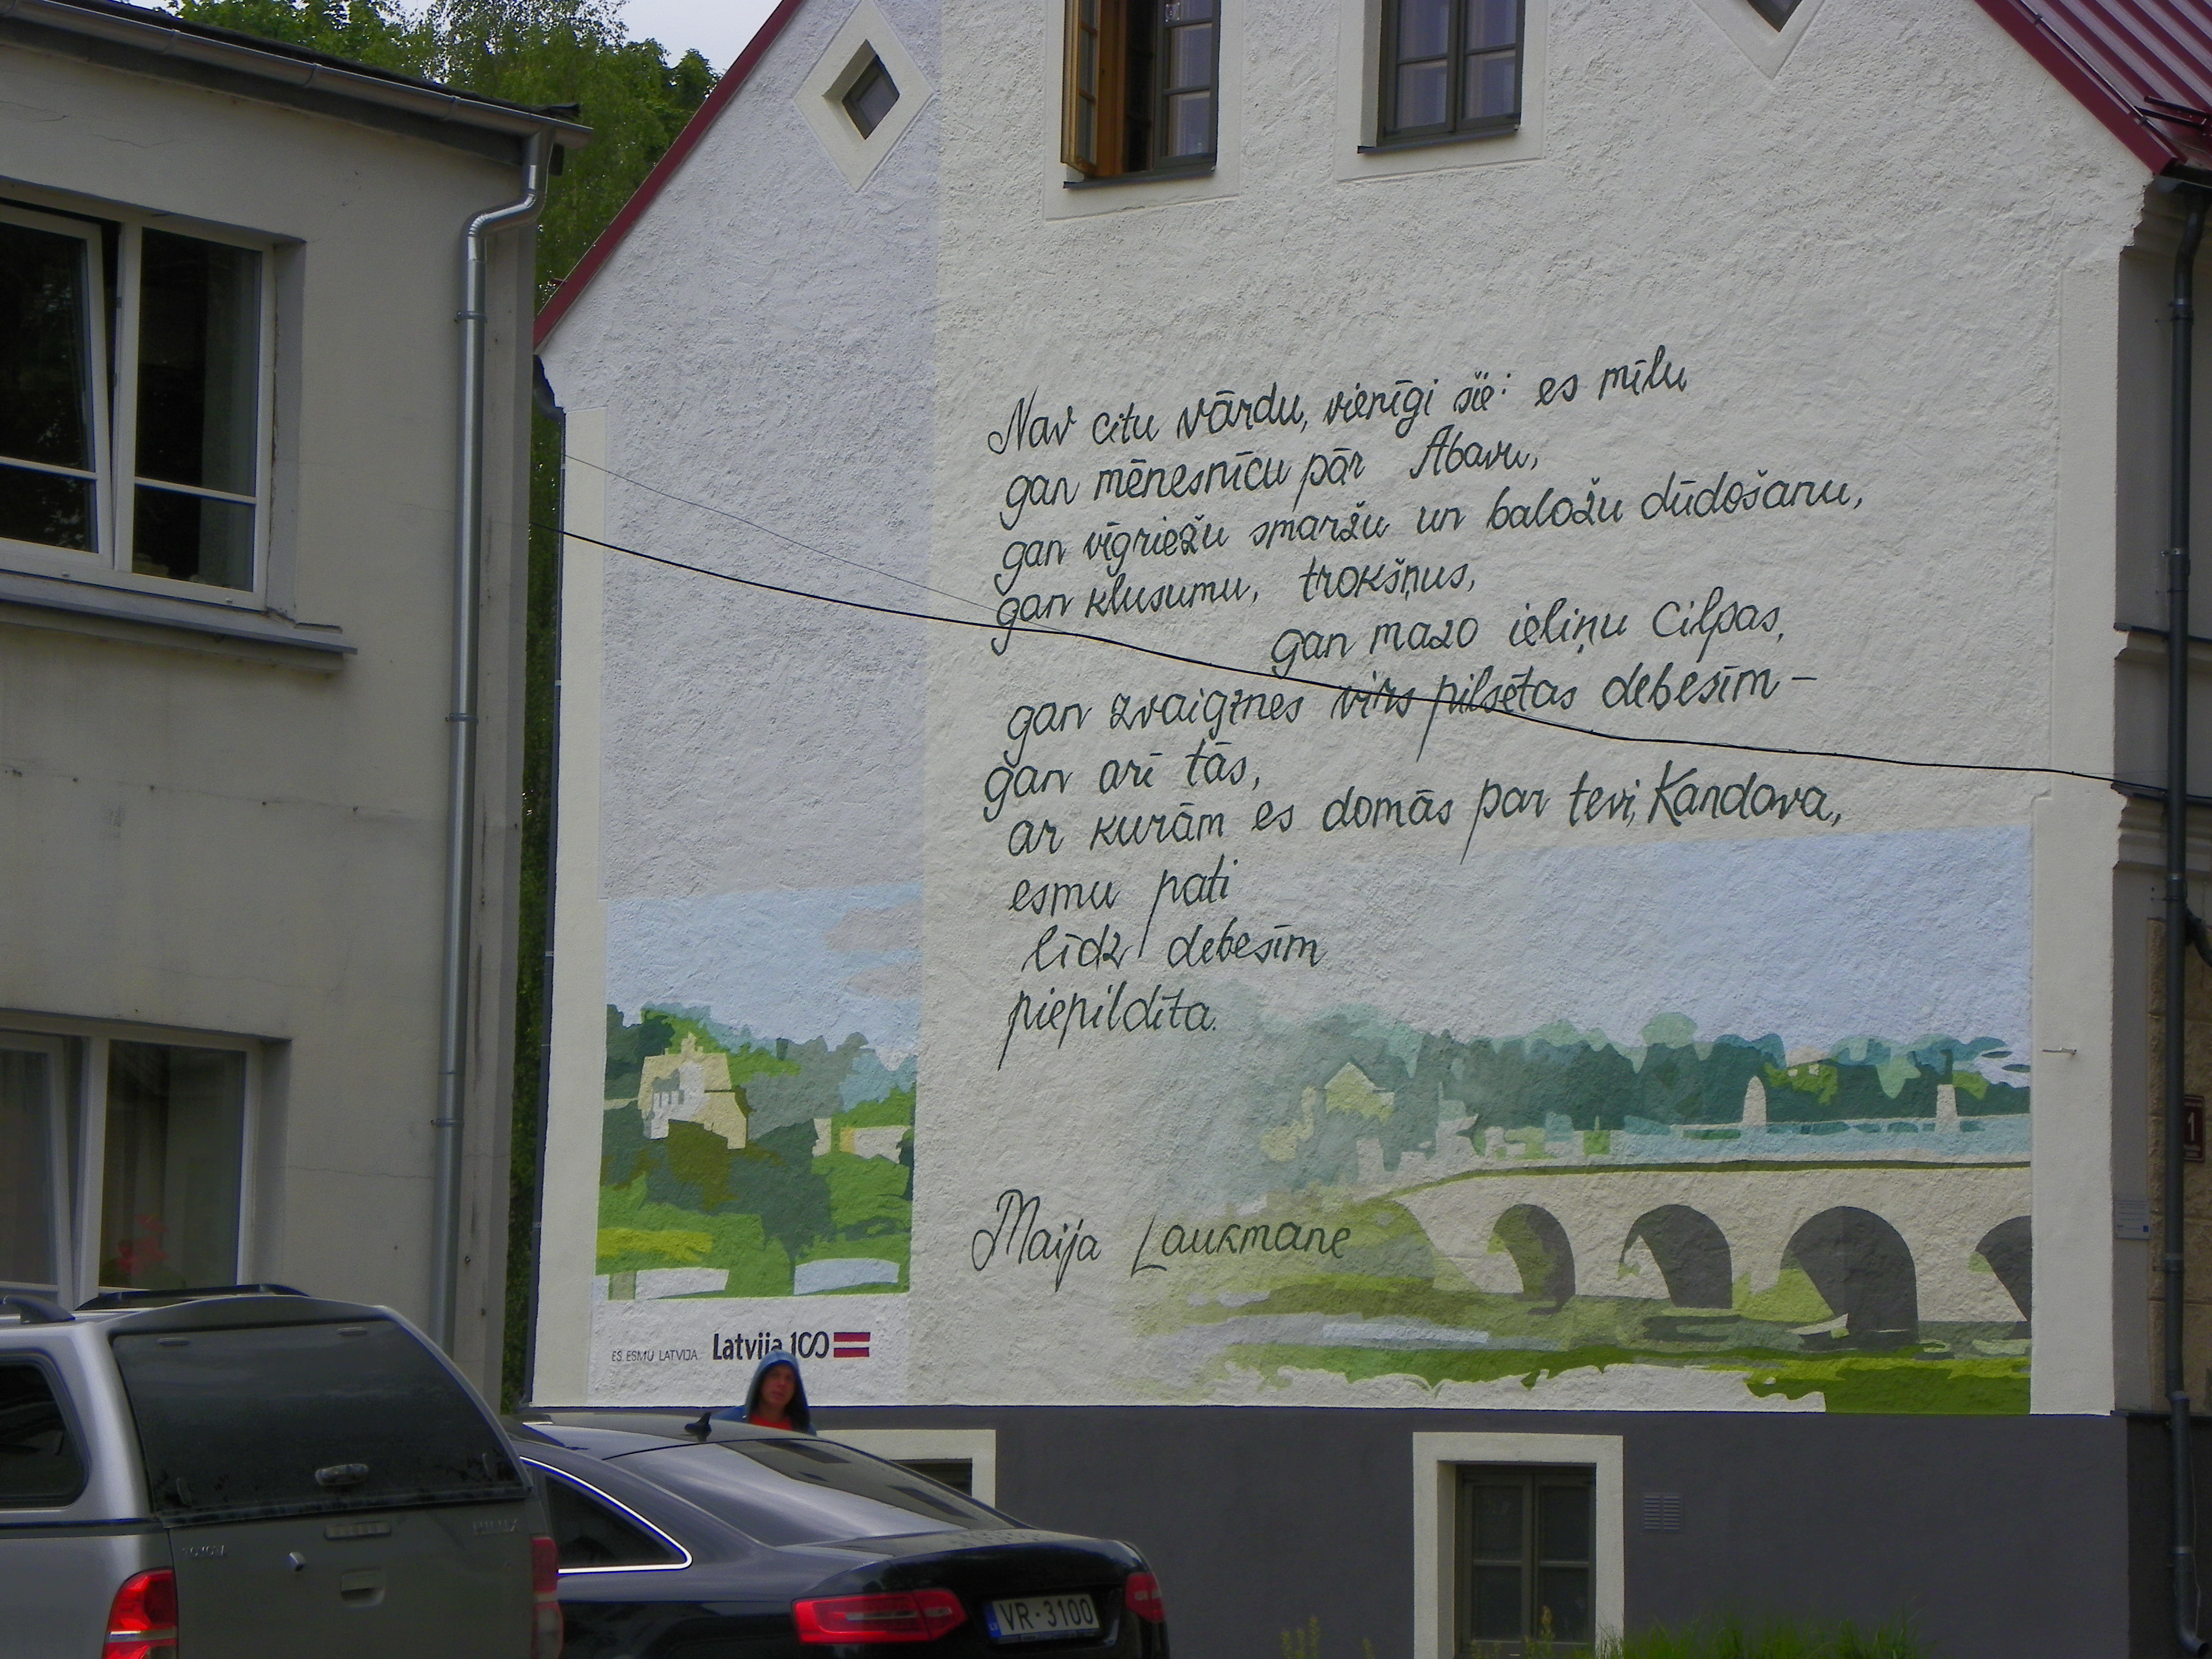 Nav citu vārdu, vienīgi šie: es mīlu
gan mēnesnīcu pār Abavu,
gan vīgriežu smaržu un baložu dūdošanu,
gan klusumu, trokšņus,
gan mazo ieliņu cilpas,
gan zvaigznes virs pilsētas debesīm –
gan arī tās,
ar kurām es domās par tevi, Kandava,
esmu pati
līdz debesīm
piepildīta.
Maija Laukmane
ES ESMU LATVIJA. Latvija 100
TOYOTA HILUX
VR-3100
1